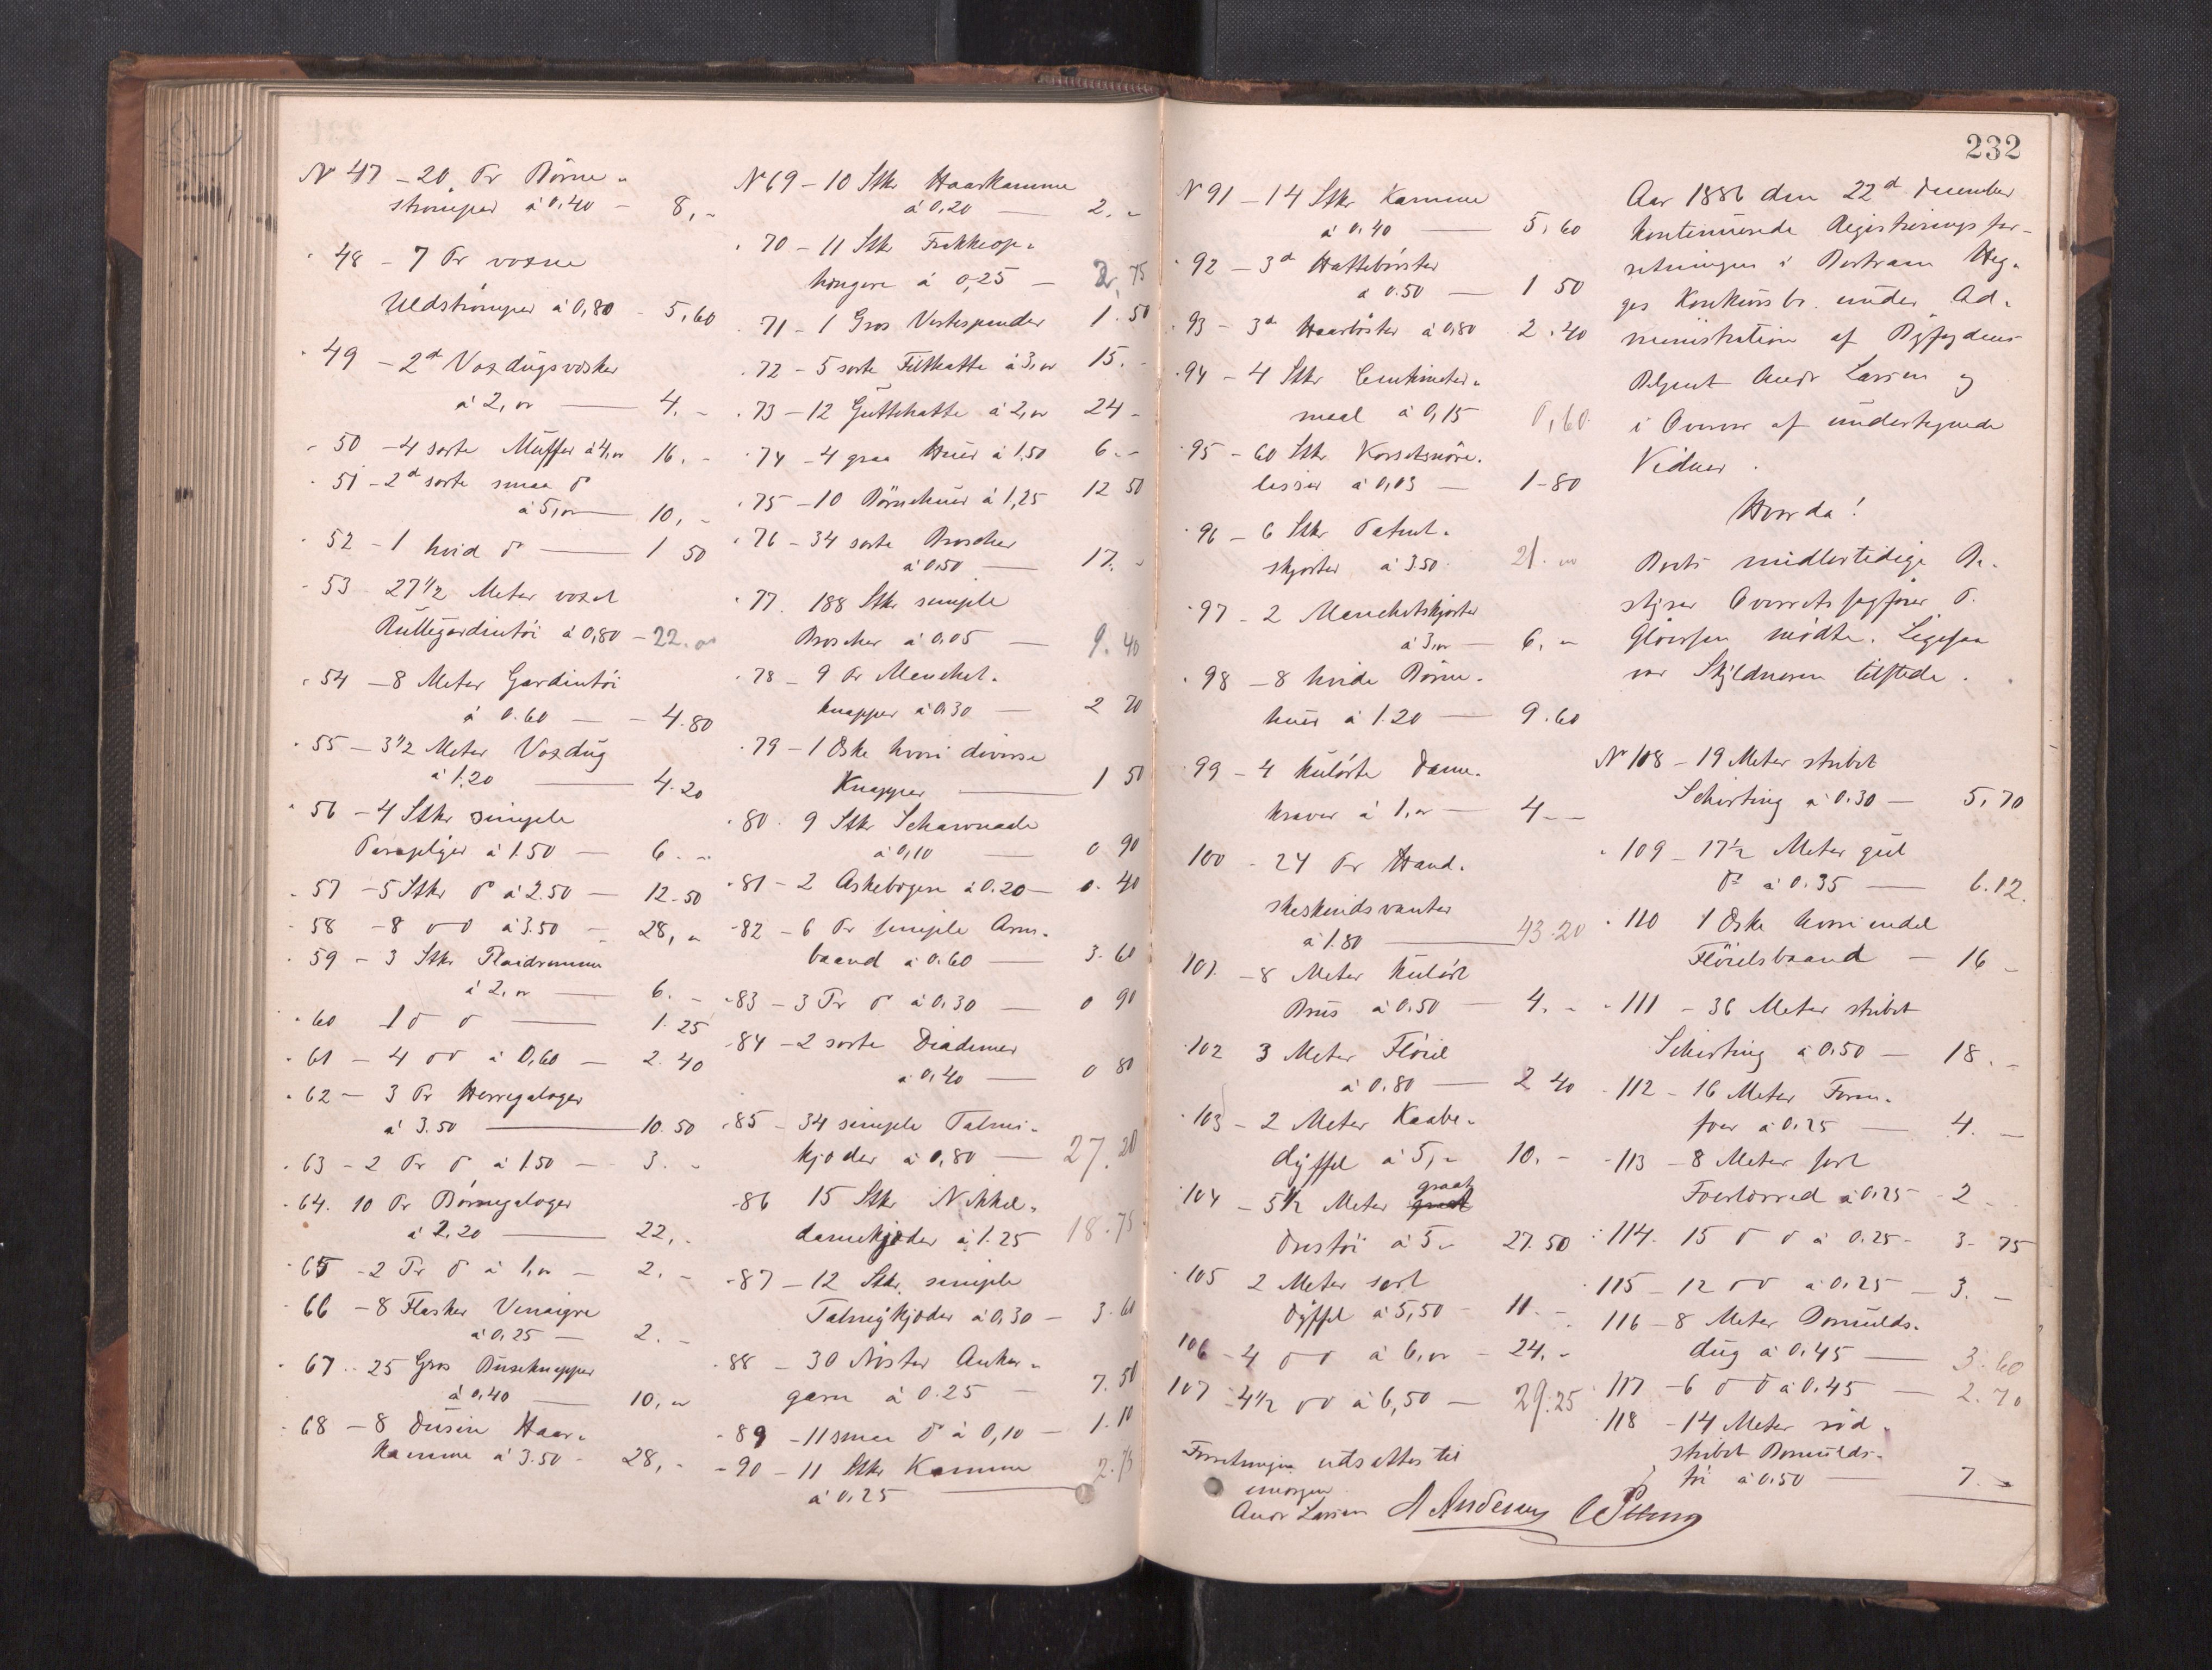 232
No 47 - 20 Pr Börne-
strömper à 0,40 - 8, -
48 - 7 Pr voxne
Uldströmper à 0,80 - 5,60
49 - 2 d Voxdugsvesker
à 2, 00 - 4. -
50 - 4 sorte Muffer à 4,00 16. -
51 - 2 d sorte smaa do
à 5,00 - 10, -
52 - 1 hvid do - 1 50
53 27 1/2 Meter voxet
Rullegardintöi à 0,80 - 22. 00
54 - 8 Meter Gardintöi
à 0.60 - 4.80
55 - 3 1/2 Meter Voxdug
à 1.20 - 4.20
56 - 4 Stkr simple
Paraplyer à 1.50 - 6. -
57 - 5 Stkr do à 2.50 - 12.50
58 - 8 do do à 3.50 - 28, -
59 - 3 Stkr Plaidremme
à 2, 00 - 6. -
60 1 do do - 1.25
61 - 4 do do à 0,60 - 2.40
62 - 3 Pr Herregaloger
à 3.50 - 10.50
63 - 2 Pr do à 1.50 - 3. -
64. 10 Pr Börnegaloger
à 2,20 - 22, -
65 - 2 Pr do à 1,00 - 2. -
66 - 8 Flasker Vinaigre
à 0,25 - 2. -
67 - 25 Gros Buxeknapper
à 0,40 - 10, -
68 - 8 Dusin Haar-
kamme à 3.50 - 28, -
No 69 - 10 Stkr Haarkamme
à 0,20 - 2. -
70 - 11 Stkr Frakkeop-
hengere à 0,25 - 2, 75
71 - 1 Gros Vestespender 1.50
72 - 5 sorte Filthatte à 3,00 15. -
73 - 12 Gutthatte à 2,00 24 -
74 - 4 graa Huer à 1.50 6. -
75 - 10 Börnehuer à 1,25 12 50
76 - 34 sorte Broscher
à 0,50 - 17. -
77. 188 Stkr simple
Broscher à 0,05 - 9.40
78 - 9 Pr Manchet-
knapper à 0.30 - 2 70
79 - 1 Öske hvori diverse
Knapper - 1 50
80. 9 Stkr Schawnaale
à 0,10 - 0 90
81 - 2 Askebægere à 0.20 - 0.40
82 - 6 Pr simple Arm-
baand à 0.60 - 3.60
83 - 3 Pr do à 0,30 - 0 90
84 - 2 sorte Diademer
à 0,40 - 0 80
85 - 34 simple Talmi-
kjæder à 0,80 - 27.20
86 15 Stkr Nikkel-
damekjæder à 1.25 18.75
87 - 12 Stkr simple
Talmikjæder à 0,30 - 3.60
88 - 30 Nöster Anker-
garn à 0.25 - 7.50
89 - 11 smaa do à 0,10 - 1.10
90 - 11 Stkr Kamme 2.75
à 0,25
No 91 - 14 Stkr Kamme
à 0,40 - 5,60
92 - 3 d Hattebörster
à 0.50 - 1 50
93 - 3 d Haarböster à 0,80 2.40
94 - 4 Stkr Centimeter-
maal à 0,15 0,60
95 - 60 Stkr Korsetsnöre-
lisser à 0,03 - 1-80
96 - 6 Stkr Patent-
skjorter à 3.50 21. 00
97 - 2 Manchetskjorter
à 3,00 - 6. -
98 - 8 hvide Börne-
huer à 1.20 - 9.60
99 - 4 kulörte Dame-
kraver à 1,00 - 4 - -
100 - 24 Pr Hand-
skeskindsvanter
à 1.80 - 43.20
101. - 8 Meter kulört
Brus à 0.50 - 4. -
102 3 Meter Flöiel
à 0.80 - 2 40
103 - 2 Meter Kaabe-
dyffel à 5, - 10. -
104 - 5 1/2 Meter graat
Drestöi à 5, - 27.50
105 2 Meter sort
Dyffel à 5,50 - 11. -
106 - 4 do do à 6,00 - 24. -
107 - 4 1/2 do do à 6,50 - 29.25
Forretningen udsattes til
imorgen
Andr Larsen A Andersen
Aar 1886 den 22 d December
kontinuerede Registreringsfor-
retningen i Bertram Heg-
ges Konkursbo under Ad-
ministration af Byfogdens
Betjent Andr Larsen og
i Overvær af undertegnede
Vidner.
Hvor da!
Boets midlertidige Be-
styrer Overretssagförer P.
Gloersen mödte. Ligesaa
var Skyldneren tilstede.
No 108 - 19 Meter stribet
Schirting à 0.30 - 5,70
109 - 17 1/2 Meter gul
do à 0.35 - 6.12.
110 1 Öske hvori endel
Flöielsbaand - 16 -
111 - 36 Meter stribet
Schirting à 0.50 - 18. -
112 - 16 Meter Form-
foer à 0.25 - 4. -
113 - 8 Meter sort
Foerlærred à 0.25 - 2 -
114. 15 do do à 0.25 - 3. 75
115 - 12 do do à 0.25 - 3. -
116 - 8 Meter Bomulds-
dug à 0.45 - 3.60
117 - 6 do do à 0.45 - 2.70
118 - 14 Meter röd-
stribet Bomulds-
töi à 0.50 - 7. -